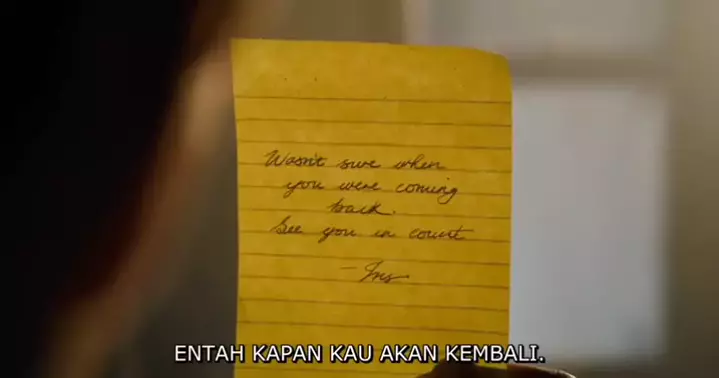 Wasn't sure when
you were coming
back.
See you in court
ENTAH KAPAN KAU AKAN KEMBALI.